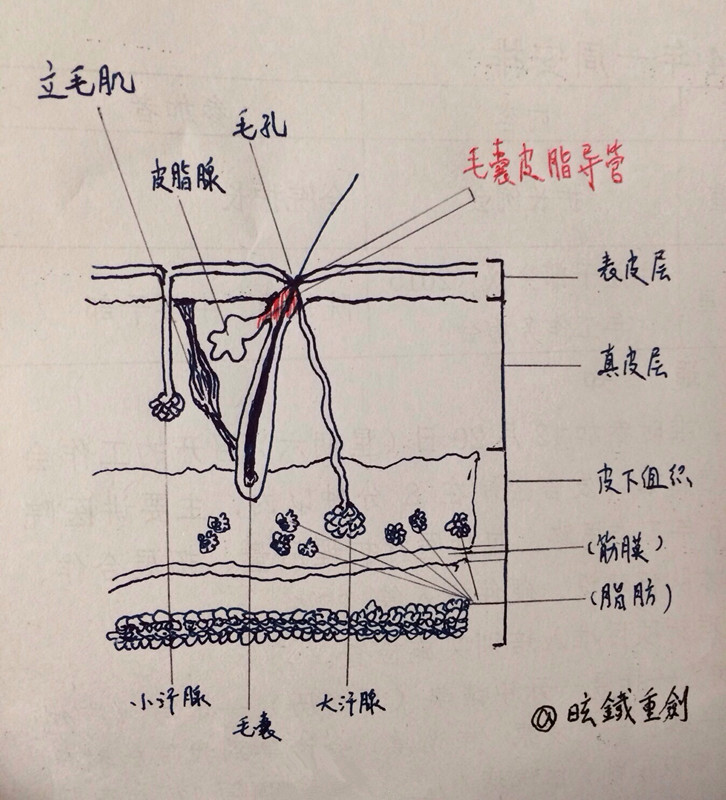 立毛肌
毛孔
皮脂腺
毛囊皮脂导管
表皮层
真皮层
皮下组织
(筋膜)
(脂肪)
小汗腺
毛囊
大汗腺
@眩鐵重劍